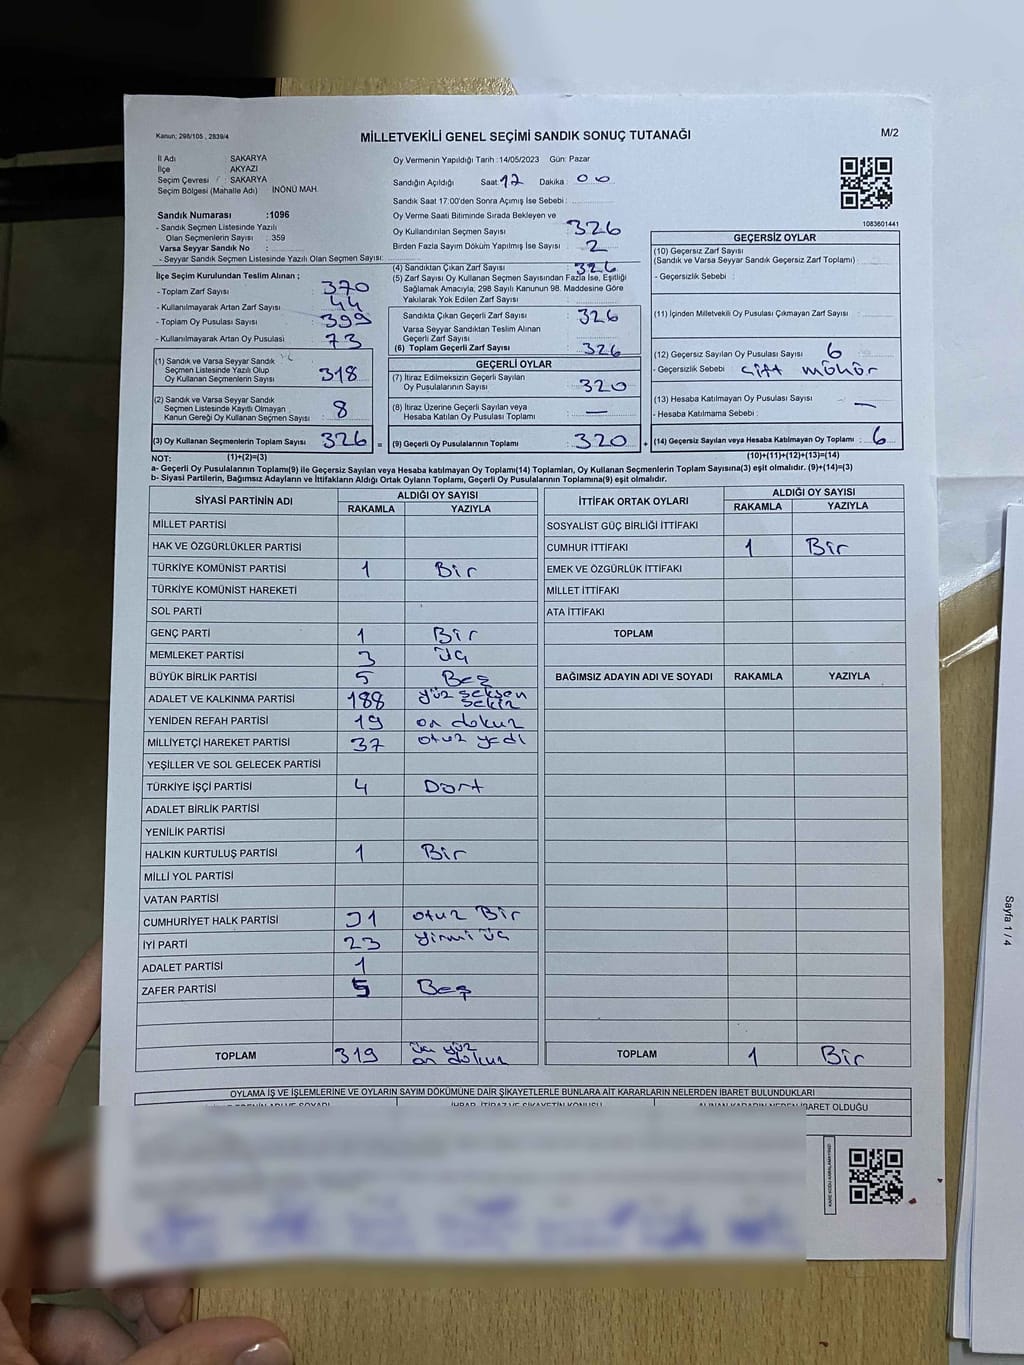 Kanun; 298/105 , 2839/4
MİLLETVEKİLİ GENEL SEÇİMİ SANDIK SONUÇ TUTANAĞI
M/2
İl Adı : SAKARYA
İlçe : AKYAZI
Seçim Çevresi : SAKARYA
Seçim Bölgesi (Mahalle Adı) İNÖNÜ MAH.
Sandık Numarası :1096
- Sandık Seçmen Listesinde Yazılı
Olan Seçmenlerin Sayısı : 359
Varsa Seyyar Sandık No :
- Seyyar Sandık Seçmen Listesinde Yazılı Olan Seçmen Sayısı:
İlçe Seçim Kurulundan Teslim Alınan ;
- Toplam Zarf Sayısı : 370
- Kullanılmayarak Artan Zarf Sayısı : 44
- Toplam Oy Pusulası Sayısı : 399
- Kullanılmayarak Artan Oy Pusulası : 73
(1) Sandık ve Varsa Seyyar Sandık
Seçmen Listesinde Yazılı Olup
Oy Kullanan Seçmenlerin Sayısı : 318
(2) Sandık ve Varsa Seyyar Sandık
Seçmen Listesinde Kayıtlı Olmayan
Kanun Gereği Oy Kullanan Seçmen Sayısı : 8
(3) Oy Kullanan Seçmenlerin Toplam Sayısı : 326 =
Oy Vermenin Yapıldığı Tarih :14/05/2023 Gün: Pazar
Sandığın Açıldığı Saat: 17 Dakika : 00
Sandık Saat 17:00'den Sonra Açımış İse Sebebi :
Oy Verme Saati Bitiminde Sırada Bekleyen ve
Oy Kullandırılan Seçmen Sayısı : 326
Birden Fazla Sayım Döküm Yapılmış İse Sayısı : 2
(4) Sandıktan Çıkan Zarf Sayısı : 326
(5) Zarf Sayısı Oy Kullanan Seçmen Sayısından Fazla İse, Eşitliği
Sağlamak Amacıyla; 298 Sayılı Kanunun 98. Maddesine Göre
Yakılarak Yok Edilen Zarf Sayısı :
Sandıkta Çıkan Geçerli Zarf Sayısı : 326
Varsa Seyyar Sandıktan Teslim Alınan
Geçerli Zarf Sayısı :
(6) Toplam Geçerli Zarf Sayısı : 326
GEÇERLİ OYLAR
(7) İtiraz Edilmeksizin Geçerli Sayılan
Oy Pusulalarının Sayısı : 320
(8) İtiraz Üzerine Geçerli Sayılan veya
Hesaba Katılan Oy Pusulası Toplamı : —
(9) Geçerli Oy Pusulalarının Toplamı : 320 +
1083601441
GEÇERSİZ OYLAR
(10) Geçersiz Zarf Sayısı
(Sandık ve Varsa Seyyar Sandık Geçersiz Zarf Toplamı) :
- Geçersizlik Sebebi :
(11) İçinden Milletvekili Oy Pusulası Çıkmayan Zarf Sayısı :
(12) Geçersiz Sayılan Oy Pusulası Sayısı : 6
- Geçersizlik Sebebi : çift mühür
(13) Hesaba Katılmayan Oy Pusulası Sayısı : —
- Hesaba Katılmama Sebebi :
(14) Geçersiz Sayılan veya Hesaba Katılmayan Oy Toplamı : 6
NOT: (1)+(2)=(3) (10)+(11)+(12)+(13)=(14)
a- Geçerli Oy Pusulalarının Toplamı(9) ile Geçersiz Sayılan veya Hesaba katılmayan Oy Toplamı(14) Toplamları, Oy Kullanan Seçmenlerin Toplam Sayısına(3) eşit olmalıdır. (9)+(14)=(3)
b- Siyasi Partilerin, Bağımsız Adayların ve İttifakların Aldığı Ortak Oyların Toplamı, Geçerli Oy Pusulalarının Toplamına(9) eşit olmalıdır.
SİYASİ PARTİNİN ADI ALDIĞI OY SAYISI
RAKAMLA YAZIYLA
MİLLET PARTİSİ
HAK VE ÖZGÜRLÜKLER PARTİSİ
TÜRKİYE KOMÜNİST PARTİSİ 1 Bir
TÜRKİYE KOMÜNİST HAREKETİ
SOL PARTİ
GENÇ PARTİ 1 Bir
MEMLEKET PARTİSİ 3 üç
BÜYÜK BİRLİK PARTİSİ 5 Beş
ADALET VE KALKINMA PARTİSİ 188 yüz seksen sekiz
YENİDEN REFAH PARTİSİ 19 on dokuz
MİLLİYETÇİ HAREKET PARTİSİ 37 otuz yedi
YEŞİLLER VE SOL GELECEK PARTİSİ
TÜRKİYE İŞÇİ PARTİSİ 4 Dört
ADALET BİRLİK PARTİSİ
YENİLİK PARTİSİ
HALKIN KURTULUŞ PARTİSİ 1 Bir
MİLLİ YOL PARTİSİ
VATAN PARTİSİ
CUMHURİYET HALK PARTİSİ 31 otuz Bir
İYİ PARTİ 23 yirmi üç
ADALET PARTİSİ 1
ZAFER PARTİSİ 5 Beş
TOPLAM 319 üç yüz on dokuz
İTTİFAK ORTAK OYLARI ALDIĞI OY SAYISI
RAKAMLA YAZIYLA
SOSYALİST GÜÇ BİRLİĞİ İTTİFAKI
CUMHUR İTTİFAKI 1 Bir
EMEK VE ÖZGÜRLÜK İTTİFAKI
MİLLET İTTİFAKI
ATA İTTİFAKI
TOPLAM
BAĞIMSIZ ADAYIN ADI VE SOYADI RAKAMLA YAZIYLA
TOPLAM 1 Bir
OYLAMA İŞ VE İŞLEMLERİNE VE OYLARIN SAYIM DÖKÜMÜNE DAİR ŞİKAYETLERLE BUNLARA AİT KARARLARIN NELERDEN İBARET BULUNDUKLARI
İHBAR, İTİRAZ VE ŞİKAYETİN KONUSU ALINAN KARARIN NEDEN İBARET OLDUĞU
Sayfa 1 / 4